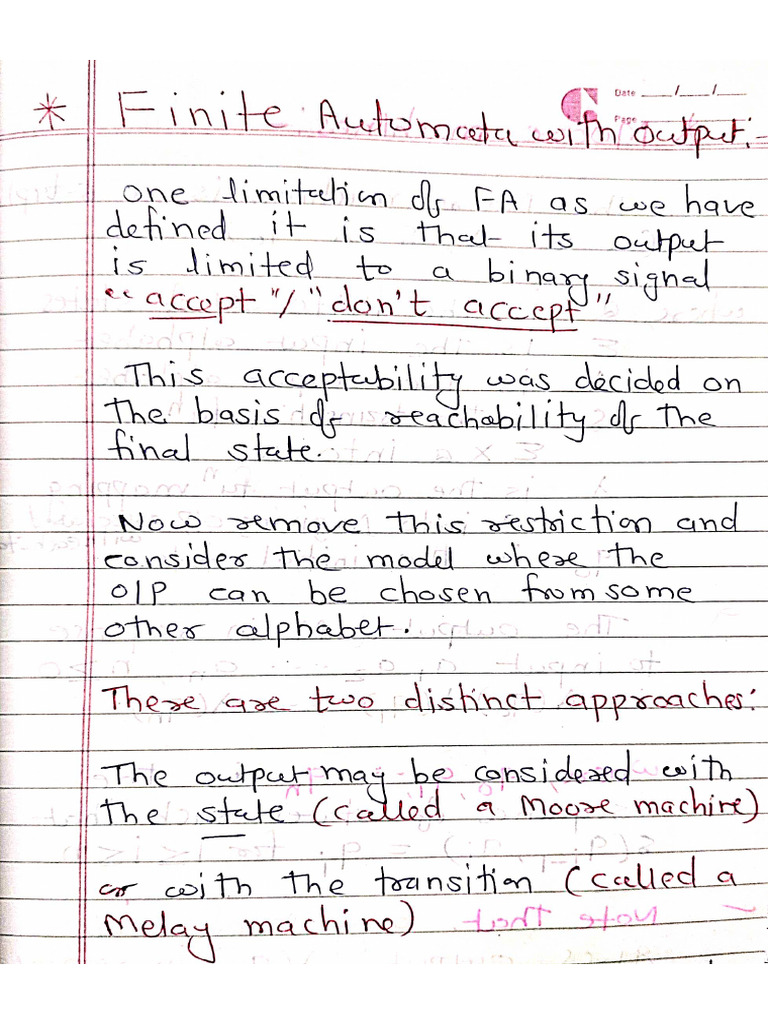 Date __/__/__
Page
* Finite Automata with output:-
one limitation of FA as we have
defined it is that its output
is limited to a binary signal
"accept"/"don't accept"
This acceptability was decided on
the basis of reachability of the
final state.
Now remove this restriction and
consider the model where the
O/P can be chosen from some
other alphabet.
There are two distinct approaches:
The output may be considered with
the state (called a Moore machine)
or with the transition (called a
Melay machine)